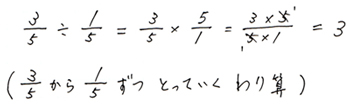 3/5 ÷ 1/5 = 3/5 × 5/1 = 3×5/5×1 = 3
(3/5 から 1/5 ずつ とっていく わり算)